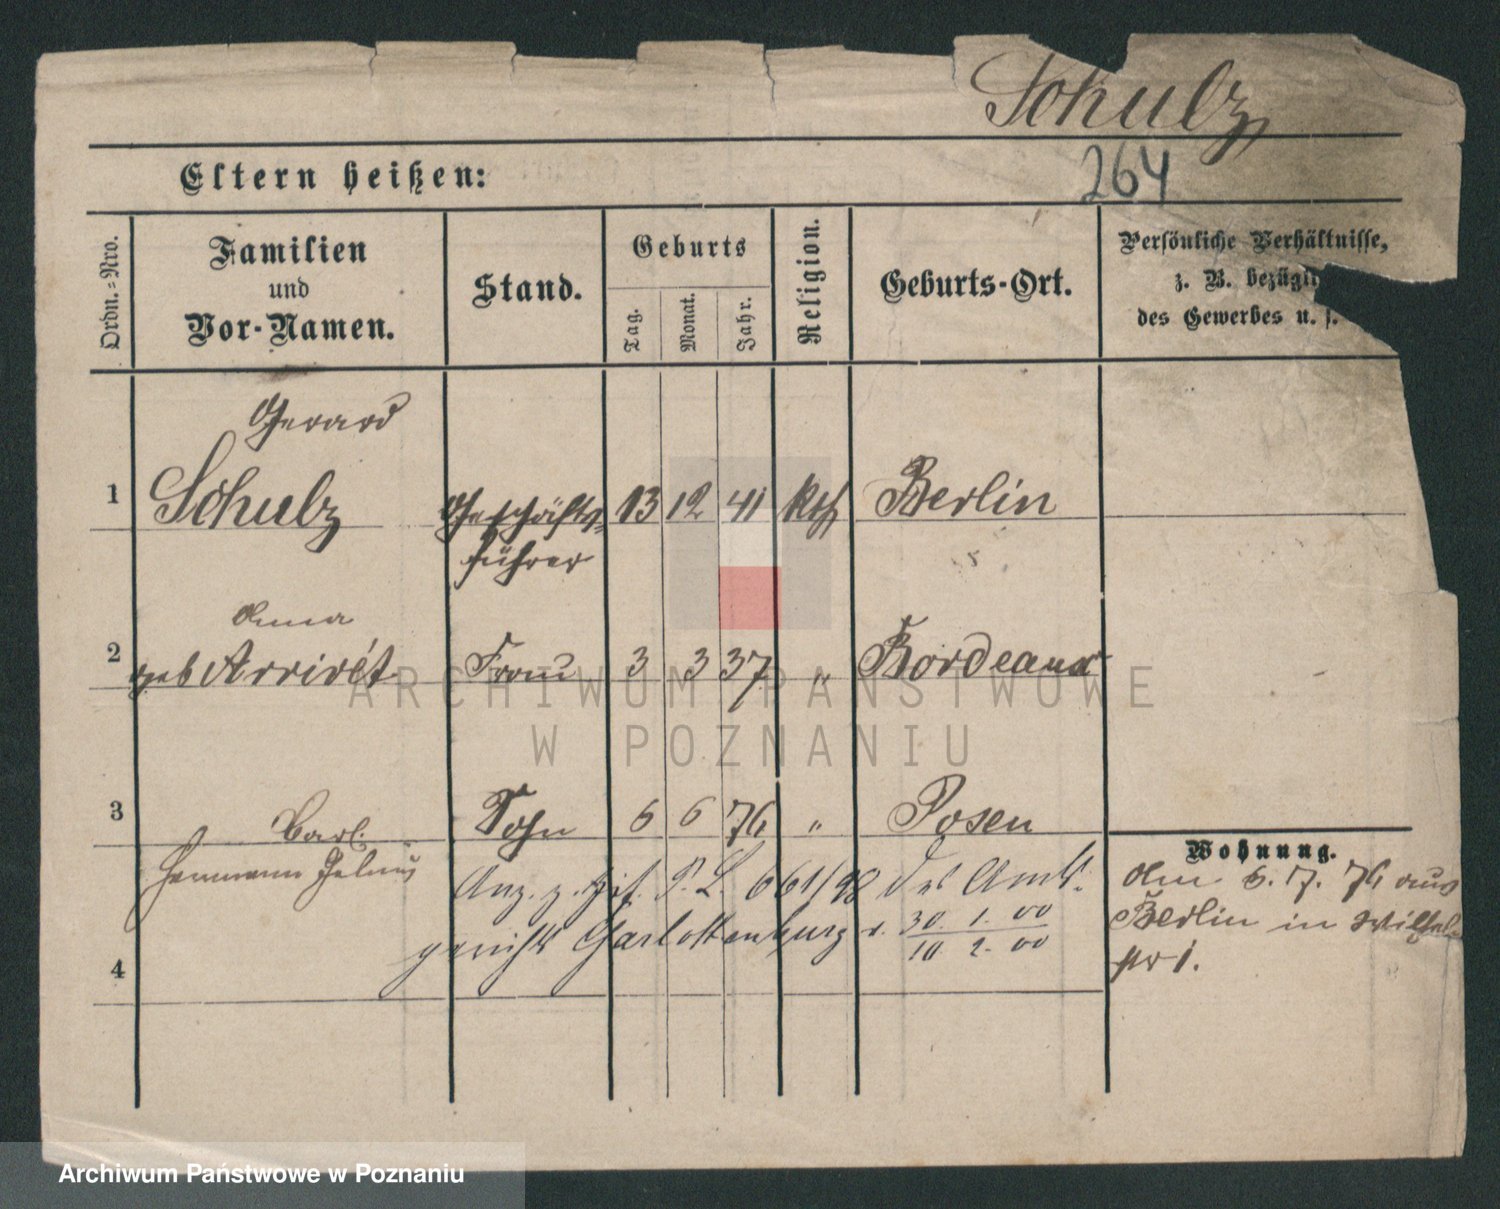 Schulz
264
Eltern heißen:
Ordn.=Nro.
Familien
und
Vor-Namen.
Stand.
Geburts
Tag.
Monat.
Jahr.
Religion.
Geburts-Ort.
Persönliche Verhältnisse,
z. B. bezügli
des Gewerbes u. s.
Gerard
1 Schulz Geschäfts= 13 12 41 Kth Berlin
führer
Anna
2 geb Arrirét Frau 3 3 37 " Bordeaux
3 Carl Sohn 6 6 76 " Posen
Hermann Julius
Anz. z. 661/98 des Amts-
gerichts Charlottenburg v. 30. 1. 00
10. 2. 00
4
Wohnung.
6. 7. 76 aus
Berlin in Wilhel
1.
ARCHIWUM PAŃSTWOWE
W POZNANIU
Archiwum Państwowe w Poznaniu